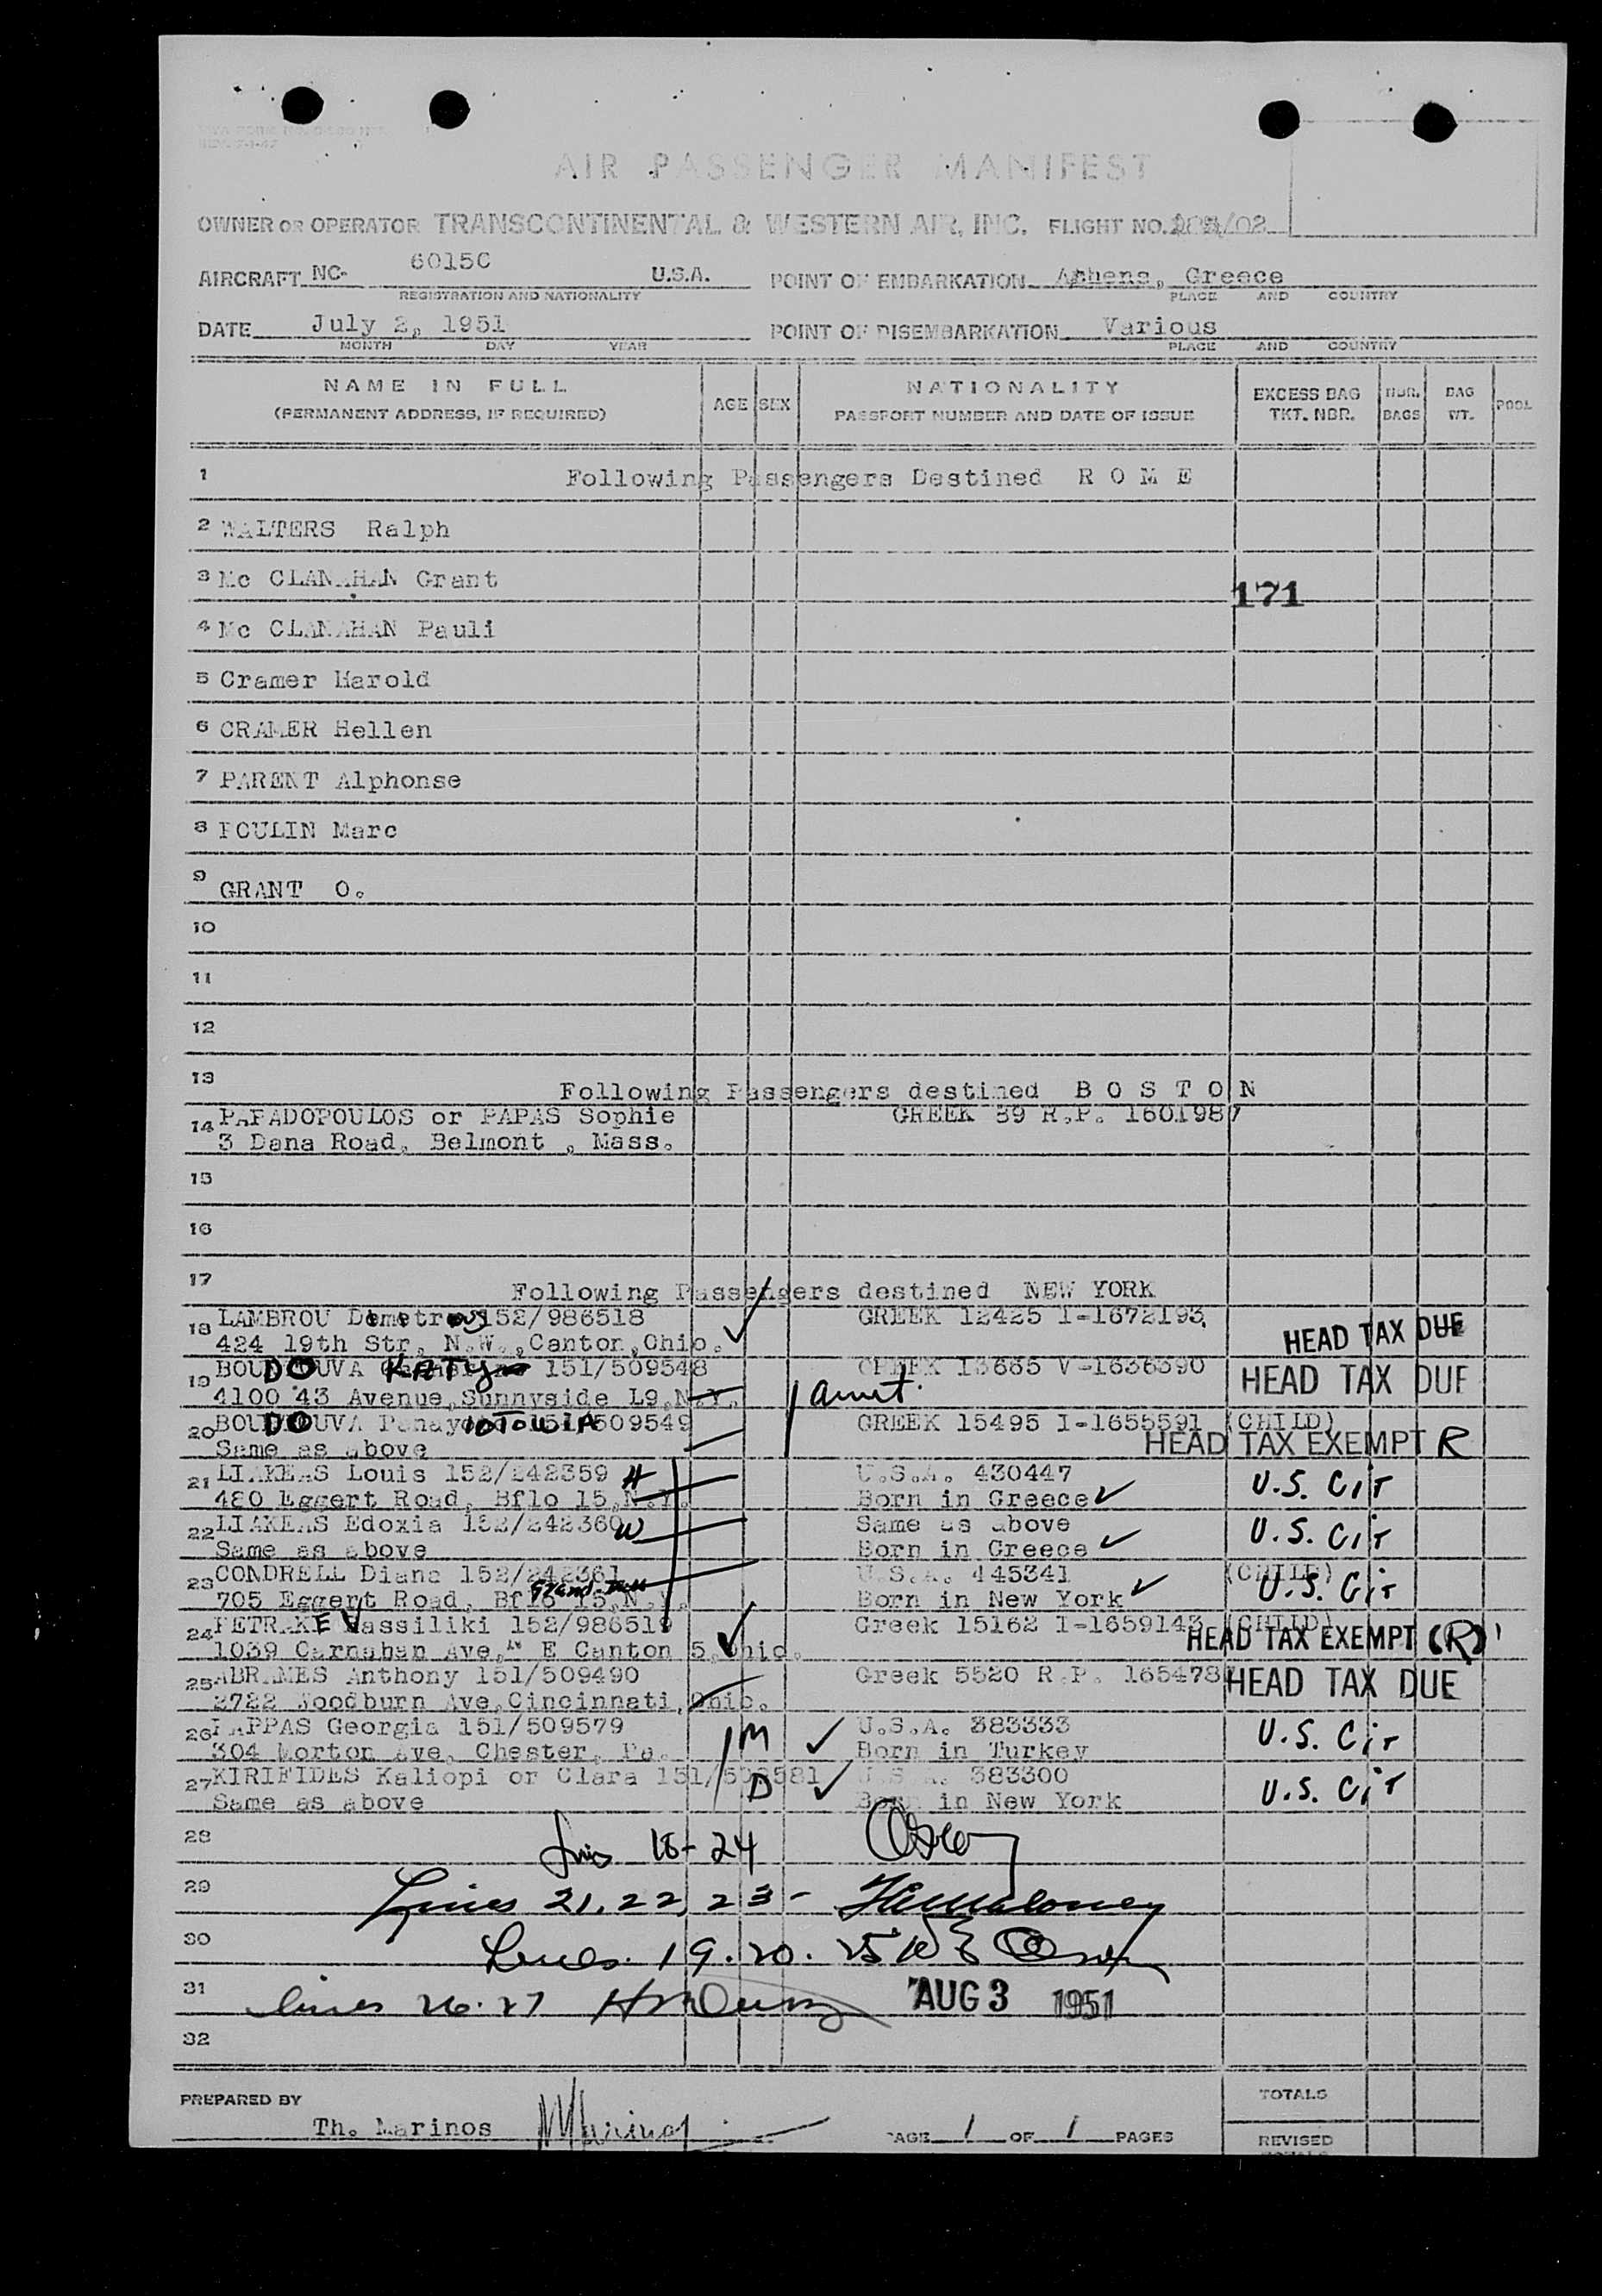 AIR PASSENGER MANIFEST
OWNER OR OPERATOR TRANSCONTINENTAL & WESTERN AIR, INC. FLIGHT NO. /02
AIRCRAFT NC- 6015C U.S.A. POINT OF EMBARKATION Athens, Greece
REGISTRATION AND NATIONALITY PLACE AND COUNTRY
DATE July 2, 1951 POINT OF DISEMBARKATION Various
MONTH DAY YEAR PLACE AND COUNTRY
NAME IN FULL
(PERMANENT ADDRESS, IF REQUIRED)
AGE SEX
NATIONALITY
PASSPORT NUMBER AND DATE OF ISSUE
EXCESS BAG
TKT. NBR.
NBR.
BAGS
BAG
WT.
POOL
1 Following Passengers Destined R O M E
2 WALTERS Ralph
3 Mc CLANAHAN Grant
171
4 Mc CLANAHAN Pauli
5 Cramer Harold
6 CRAMER Hellen
7 PARENT Alphonse
8 POULIN Marc
9 GRANT O.
10
11
12
13 Following Passengers destined B O S T O N
14 PAPADOPOULOS or PAPAS Sophie GREEK 39 R.P. 1601987
3 Dana Road, Belmont , Mass.
15
16
17 Following Passengers destined NEW YORK
18 LAMBROU Demetrous 152/986518 GREEK 12425 I-1672193
424 19th Str. N.W.,Canton,Ohio. HEAD TAX DUE
19 BOUDOUVA KATY 151/509548 GREEK 13665 V-1636390
4100 43 Avenue,Sunnyside L9,N.Y. aunt. HEAD TAX DUE
20 BOUDOUVA PanayOTOUIA 151/509549 GREEK 15495 I-1655591 (CHILD)
Same as above HEAD TAX EXEMPT R
21 LIAKEAS Louis 152/242359 H U.S.A. 430447
480 Eggert Road, Bflo 15,N.Y. Born in Greece U.S. Cit
22 LIAKEAS Edoxia 152/242360 W Same as above
Same as above Born in Greece U.S. Cit
23 CONDRELL Diane 152/242361 U.S.A. 445341 (CHILD)
705 Eggert Road, Bflo 15,N.Y. Born in New York U.S. Cit
24 PETRAKE Vassiliki 152/986519 Greek 15162 I-1659143 (CHILD)
1039 Carnahan Ave, E Canton 5,Ohio. HEAD TAX EXEMPT (R)
25 ABRAMES Anthony 151/509490 Greek 5520 R.P. 165478
2722 Woodburn Ave,Cincinnati,Ohio. HEAD TAX DUE
26 PAPPAS Georgia 151/509579 U.S.A. 383333
304 Morton Ave, Chester, Pa. M Born in Turkey U.S. Cit
27 KIRIFIDES Kaliopi or Clara 151/509581 U.S.A. 383300
Same as above D Born in New York U.S. Cit
28 18-24
29 Lines 21,22,23-
30 Lines 19.20.25
31 lines 26.27 AUG 3 1951
32
PREPARED BY TOTALS
Th. Marinos PAGE 1 OF 1 PAGES
REVISED